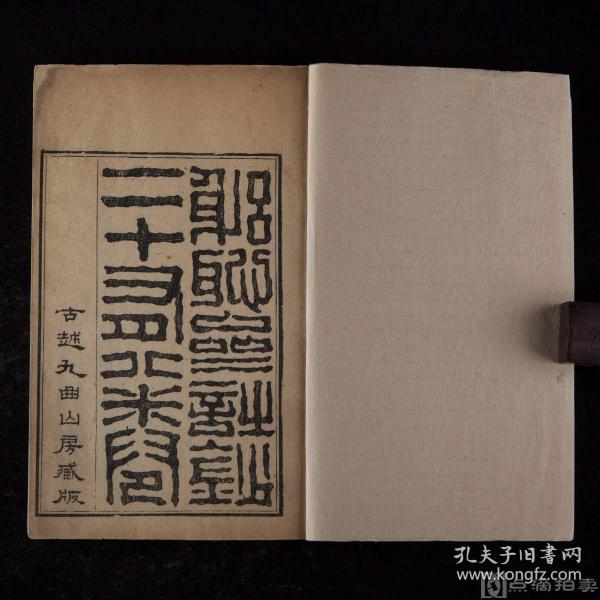 躳恥齋詩鈔
二十又四卷
古越九曲山房藏版
孔夫子旧書网
www.kongfz.com
点滴拍卖